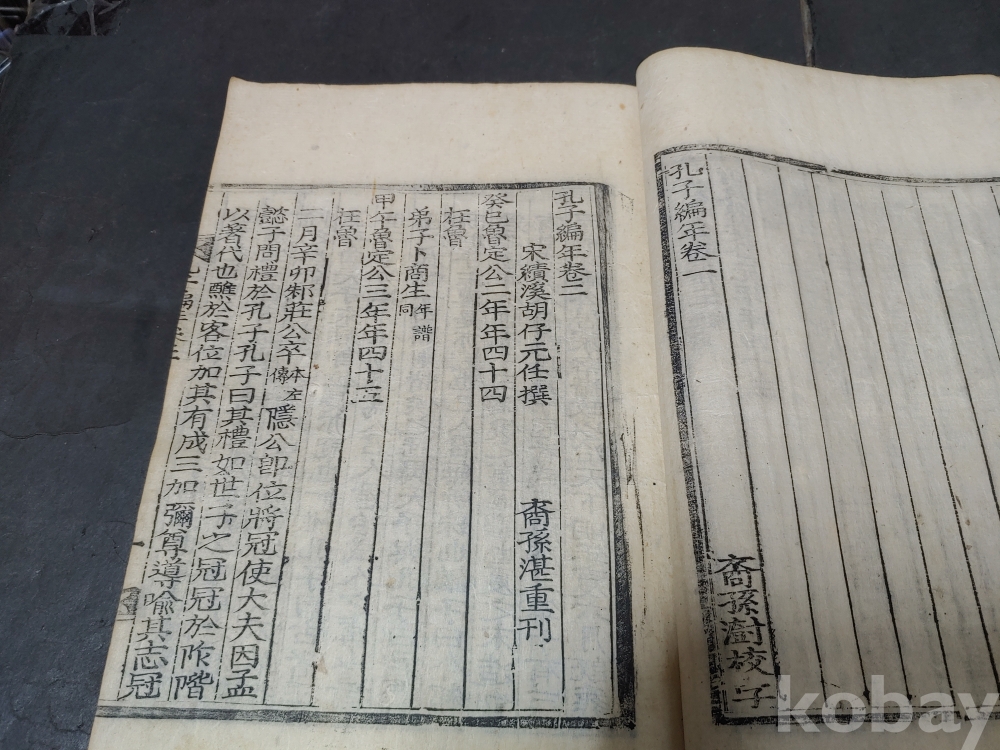 孔子編年卷一
裔孫澍校字
孔子編年卷二
宋績溪胡仔元任撰 裔孫湛重刊
癸巳魯定公二年年四十四
在魯
弟子卜商生年譜同
甲午魯定公三年年四十五
在魯
二月辛卯邾莊公卒本左傳隱公卽位將冠使大夫因孟
懿子問禮於孔子孔子曰其禮如世子之冠冠於阼階
以著代也醮於客位加其有成三加彌尊導喻其志冠
kobay